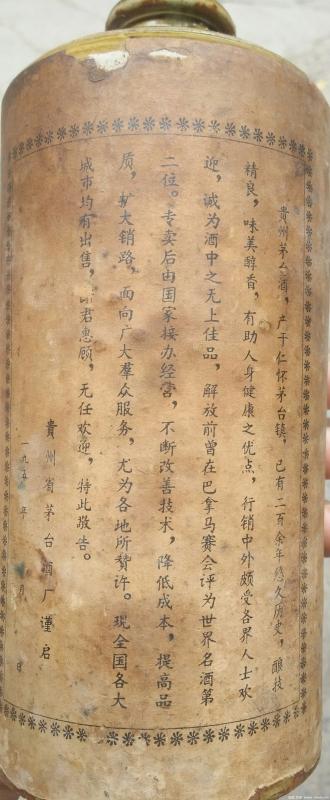 贵州茅台酒，产于仁怀茅台镇，已有二百余年悠久历史，酿技
精良，味美醇香，有助人身健康之优点，行销中外颇受各界人士欢
迎，诚为酒中之无上佳品，解放前曾在巴拿马赛会评为世界名酒第
二位。专卖后由国家接办经营，不断改善技术，降低成本，提高品
质，扩大销路，面向广大羣众服务，尤为各地所赞许。现全国各大
城市均有出售，君惠顾，无任欢迎，特此敬告。
貴州省茅台酒厂谨启
一九五年月日